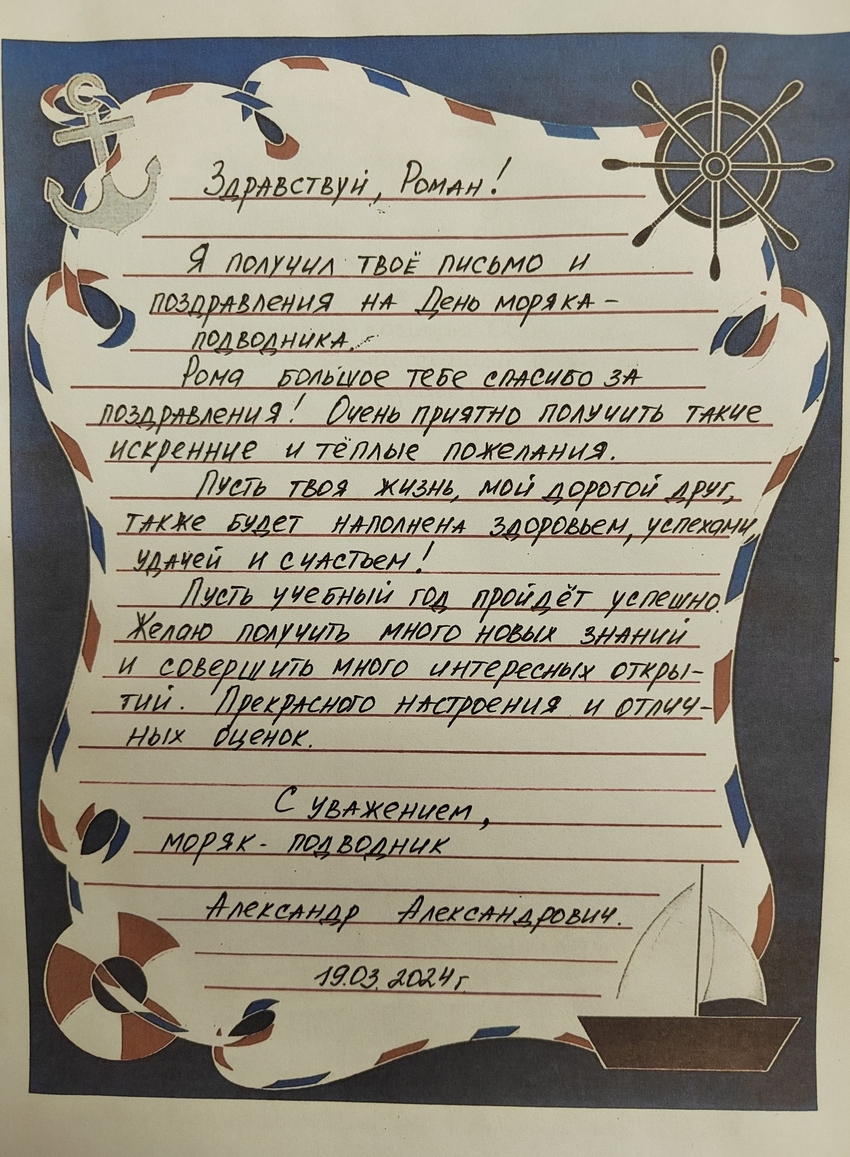 Здравствуй, Роман!
Я получил твоё письмо и
поздравления на День моряка-
подводника.
Рома большое тебе спасибо за
поздравления! Очень приятно получить такие
искренние и тёплые пожелания.
Пусть твоя жизнь, мой дорогой друг,
также будет наполнена здоровьем, успехами,
удачей и счастьем!
Пусть учебный год пройдёт успешно.
Желаю получить много новых знаний
и совершить много интересных откры-
тий. Прекрасного настроения и отлич-
ных оценок.
С уважением,
моряк- подводник
Александр Александрович.
19.03.2024г.